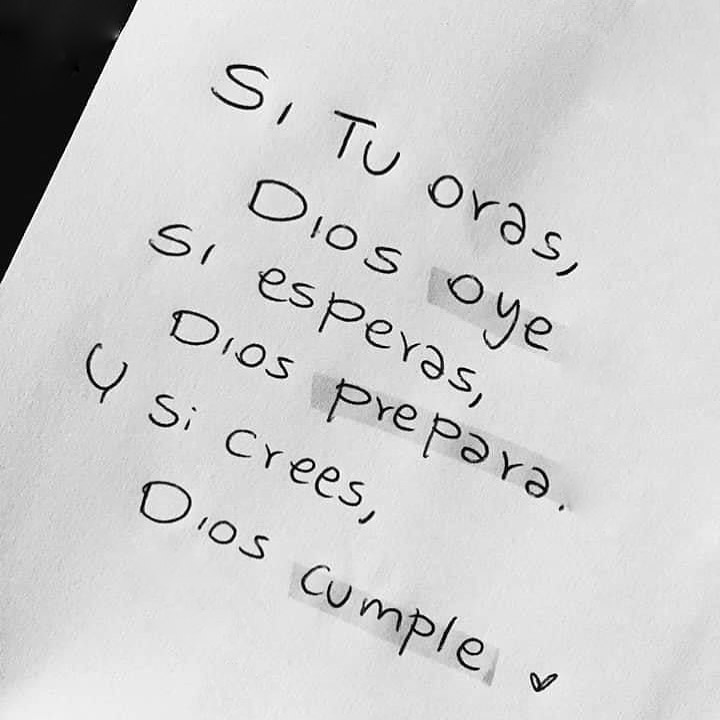 Si Tu oras,
Dios oye
Si esperas,
Dios prepara.
Y si crees,
Dios cumple.